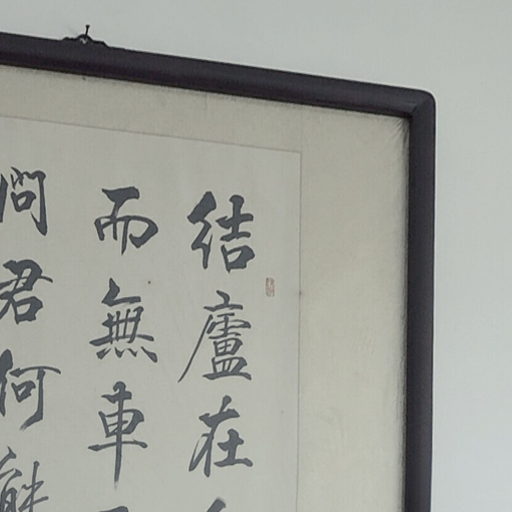 結廬在
而無車
問君何能